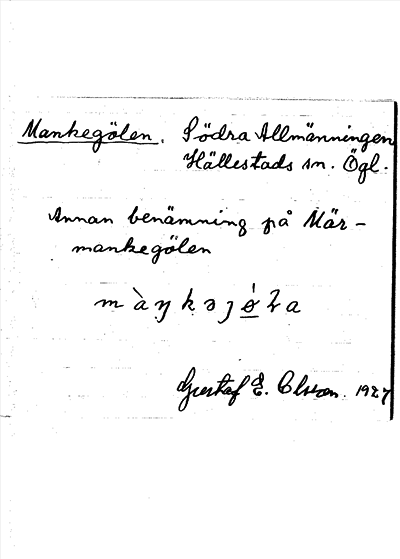 Mankegölen. Södra Allmänningen
Hällestads sn. Ögl.
Annan benämning på Mär-
mankegölen
màŋkəȷǿ̲ɫa
Gustaf E. Olsson. 1927